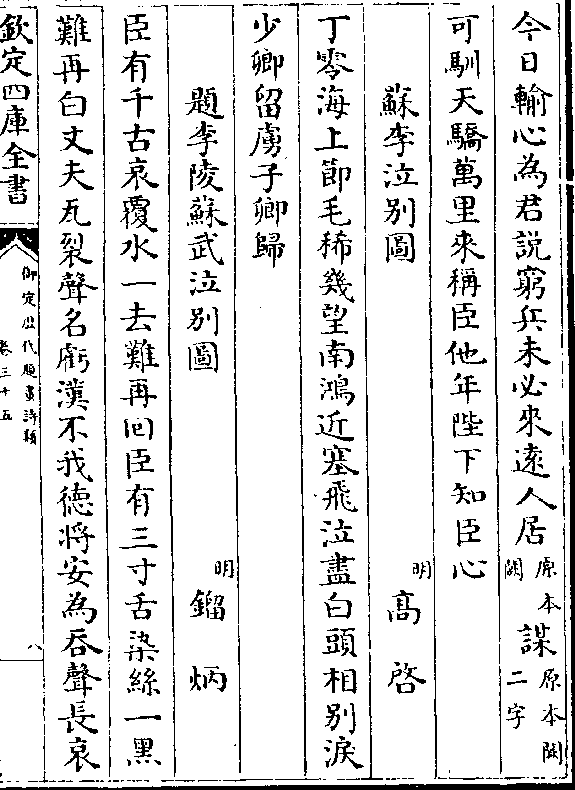 今日輸心為君説窮兵未必來逺人居原本闕謀原本闕二字
可馴天驕萬里來稱臣他年陛下知臣心
蘇李泣别圖
明 髙啓
丁零海上節毛稀幾望南鴻近塞飛泣盡白頭相别淚
少卿留虜子卿歸
題李陵蘇武泣别圖
明 鎦炳
臣有千古哀覆水一去難再回臣有三寸舌染絲一黑
難再白丈夫瓦裂聲名虧漢不我德將安為吞聲長哀
欽定四庫全書
御定歴代題畫詩類
卷三十五
八